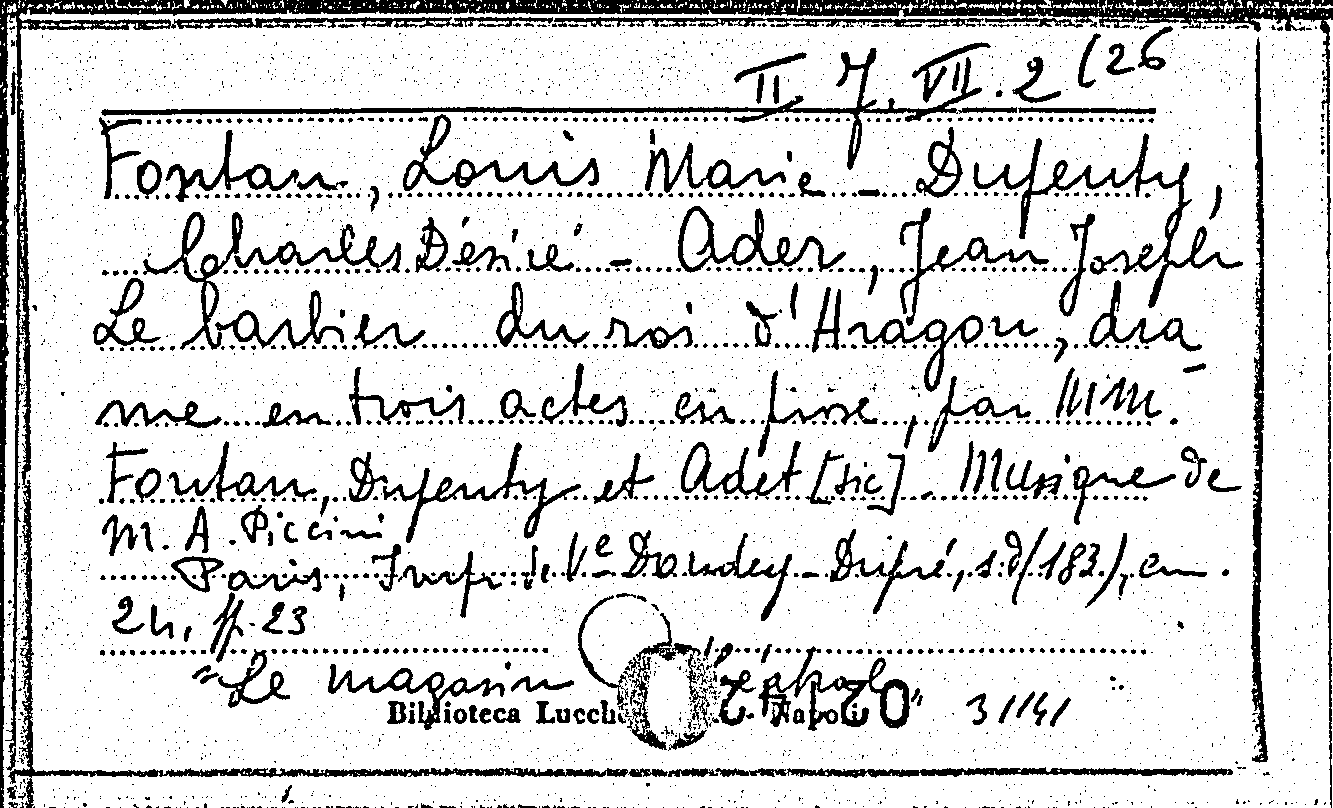 II. 7. VII. 2 (26
Fontan, Louis Marie - Dupeuty,
Charles Désiré - Ader, Jean Joseph
Le barbier du roi d'Aragon, dra-
me en trois actes en prose, par MM.
Fontan, Dupeuty et Adet [sic]. Musique de
M. A. Piccini
Paris, Impr. de Vᵉ Dondey-Dupré, s.d/(183.), cm.
24, pp. 23
"Le magasin théâtral"
Biblioteca Lucch Napoli 3141